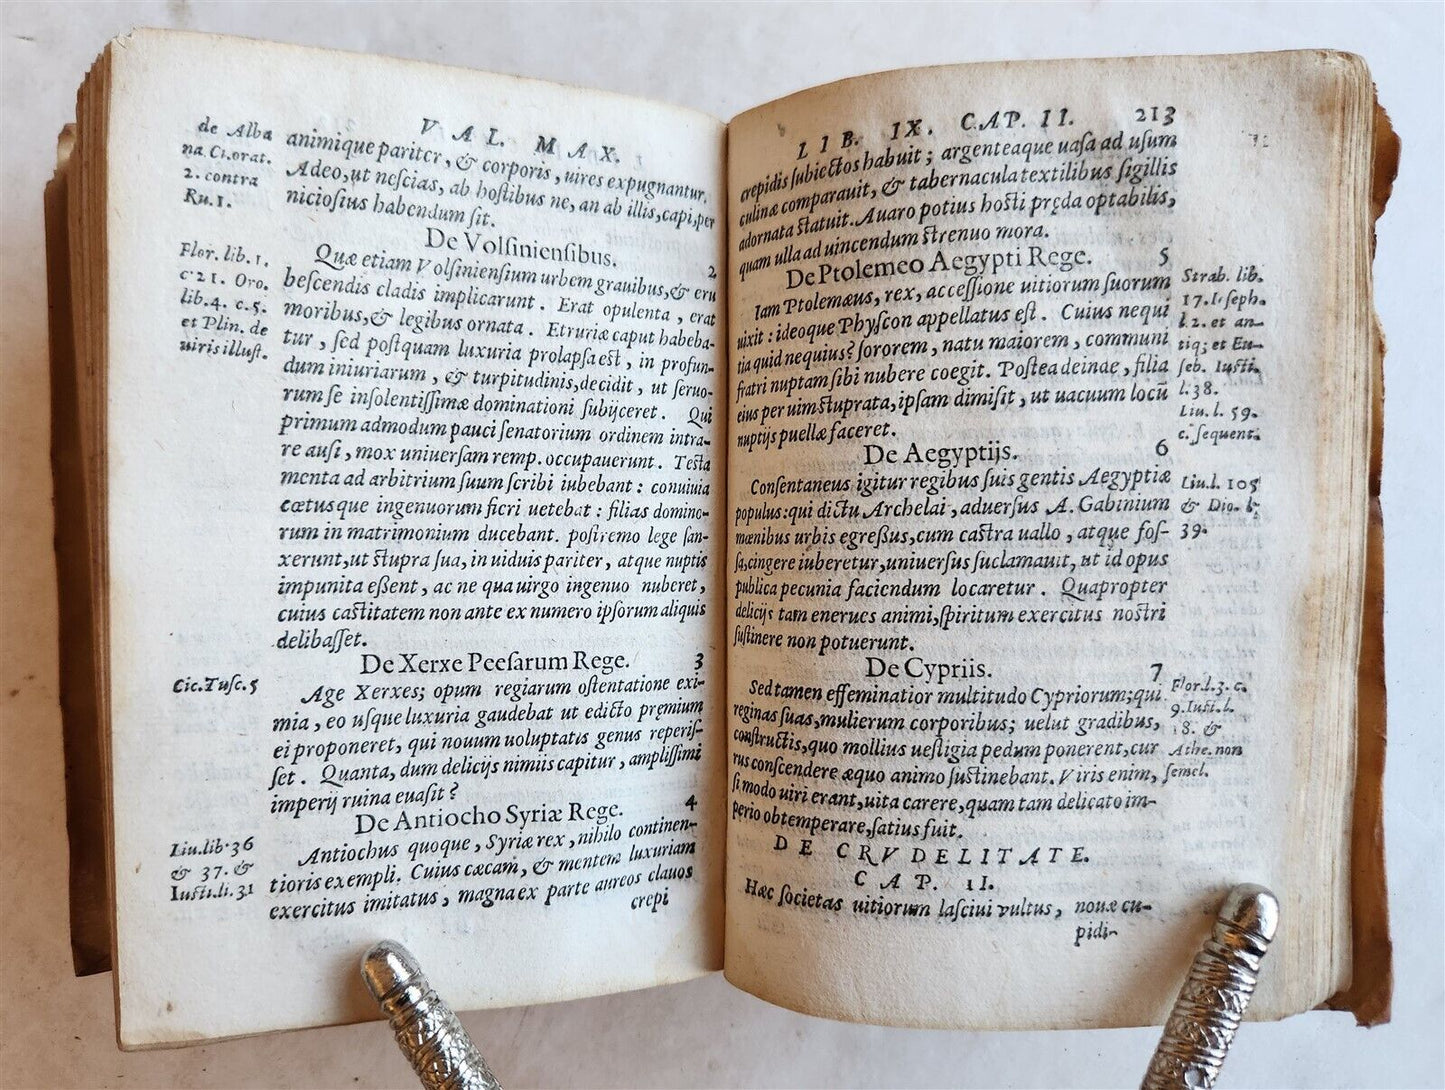 VAL. MAX.
de Alba
na Ci.orat.
2. contra
Ru. 1.
animique pariter, & corporis, uires expugnantur.
Adeo, ut nescias, ab hostibus ne, an ab illis, capi, per
niciosius habendum sit.
De Volsiniensibus. 2
Flor. lib. 1.
c 21. Oro.
lib. 4. c. 5.
et Plin. de
uiris illust.
Quæ etiam Volsiniensium urbem grauibus, & eru
bescendis cladis implicarunt. Erat opulenta, erat
moribus, & legibus ornata. Etruriæ caput habeba-
tur, sed postquam luxuria prolapsa est, in profun-
dum iniuriarum, & turpitudinis, decidit, ut seruo-
rum se insolentissimæ dominationi subijceret. Qui
primum admodum pauci senatorium ordinem intra-
re ausi, mox uniuersam remp. occupauerunt. Testa
menta ad arbitrium suum scribi iubebant: conuiuia
cœtusque ingenuorum fieri uetebat: filias domino-
rum in matrimonium ducebant. postremo lege san-
xerunt, ut stupra sua, in uiduis pariter, atque nuptis
impunita eßent, ac ne qua uirgo ingenuo nuberet,
cuius castitatem non ante ex numero ipsorum aliquis
delibasset.
De Xerxe Peesarum Rege. 3
Cic. Tusc. 5
Age Xerxes; opum regiarum ostentatione exi-
mia, eo usque luxuria gaudebat ut edicto premium
ei proponeret, qui nouum uoluptatis genus reperis-
set. Quanta, dum delicijs nimiis capitur, amplissimi
imperij ruina euasit?
De Antiocho Syriæ Rege. 4
Liu. lib. 36
& 37. &
Iusti. li. 31
Antiochus quoque, Syriæ rex, nihilo continen-
tioris exempli. Cuius cæcam, & mentem luxuriam
exercitus imitatus, magna ex parte aureos clauos
crepi
LIB. IX. CAP. II. 213
crepidis subiectos habuit; argenteaque uasa ad usum
culinæ comparauit, & tabernacula textilibus sigillis
adornata statuit. Auaro potius hosti pręda optabilis,
quam ulla ad uincendum strenuo mora.
De Ptolemeo Aegypti Rege. 5
Iam Ptolemæus, rex, accessione uitiorum suorum
uixit: ideoque Physcon appellatus est. Cuius nequi
tia quid nequius? sororem, natu maiorem, communi
fratri nuptam sibi nubere coegit. Postea deinde, filia
eius per uim stuprata, ipsam dimisit, ut uacuum locū
nuptijs puellæ faceret.
Strab. lib.
17. Ioseph.
l. 2. et an-
tiq; et Eu-
seb. Iusti.
l. 38.
Liu. l. 59.
c. sequent.
De Aegyptijs. 6
Consentaneus igitur regibus suis gentis Aegyptiæ
populus: qui dictu Archelai, aduersus A. Gabinium
mœnibus urbis egreßus, cum castra uallo, atque fos-
sa, cingere iuberetur, uniuersus suclamauit, ut id opus
publica pecunia faciendum locaretur. Quapropter
delicijs tam enerues animi, spiritum exercitus nostri
sustinere non potuerunt.
Liu. l. 105
& Dio. l.
39.
De Cypriis. 7
Sed tamen effeminatior multitudo Cypriorum; qui
reginas suas, mulierum corporibus; uelut gradibus,
constructis, quo mollius uestigia pedum ponerent, cur
rus conscendere æquo animo sustinebant. Viris enim,
si modo uiri erant, uita carere, quam tam delicato im-
perio obtemperare, satius fuit.
Flor. l. 3. c.
9. Iusti. l.
18. &
Athe. non
semel.
DE CRVDELITATE.
CAP. II.
Hæc societas uitiorum lasciui vultus, nouæ cu-
pidi-